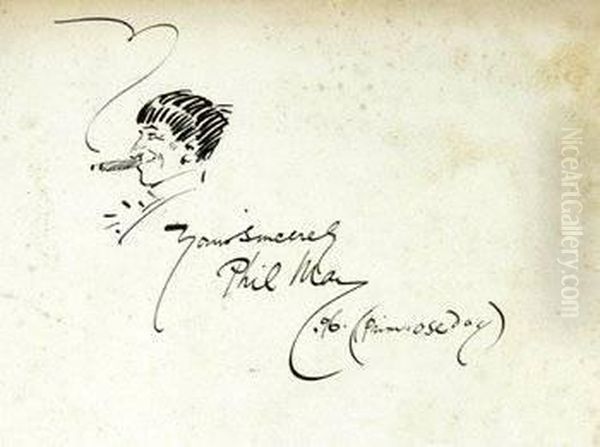 Yours Sincerely
Phil May
.96. (Primrose Day)
NiceArtGallery.com